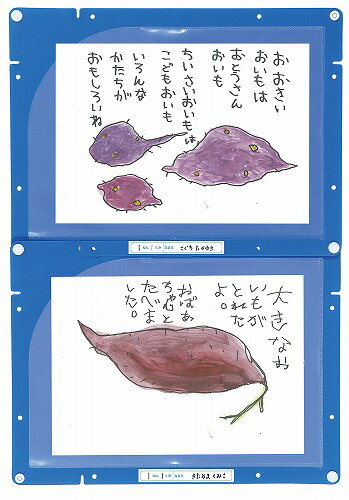 おおきい
おいもは
おとうさん
おいも
ちいさいおいもは
こどもおいも
いろんな
かたちが
おもしろいね
1 ねん 1 くみ なまえ
大きなお
いもが
とれた
よ。
おばあ
ちゃんと
たべま
した。
1 ねん 1 くみ なまえ